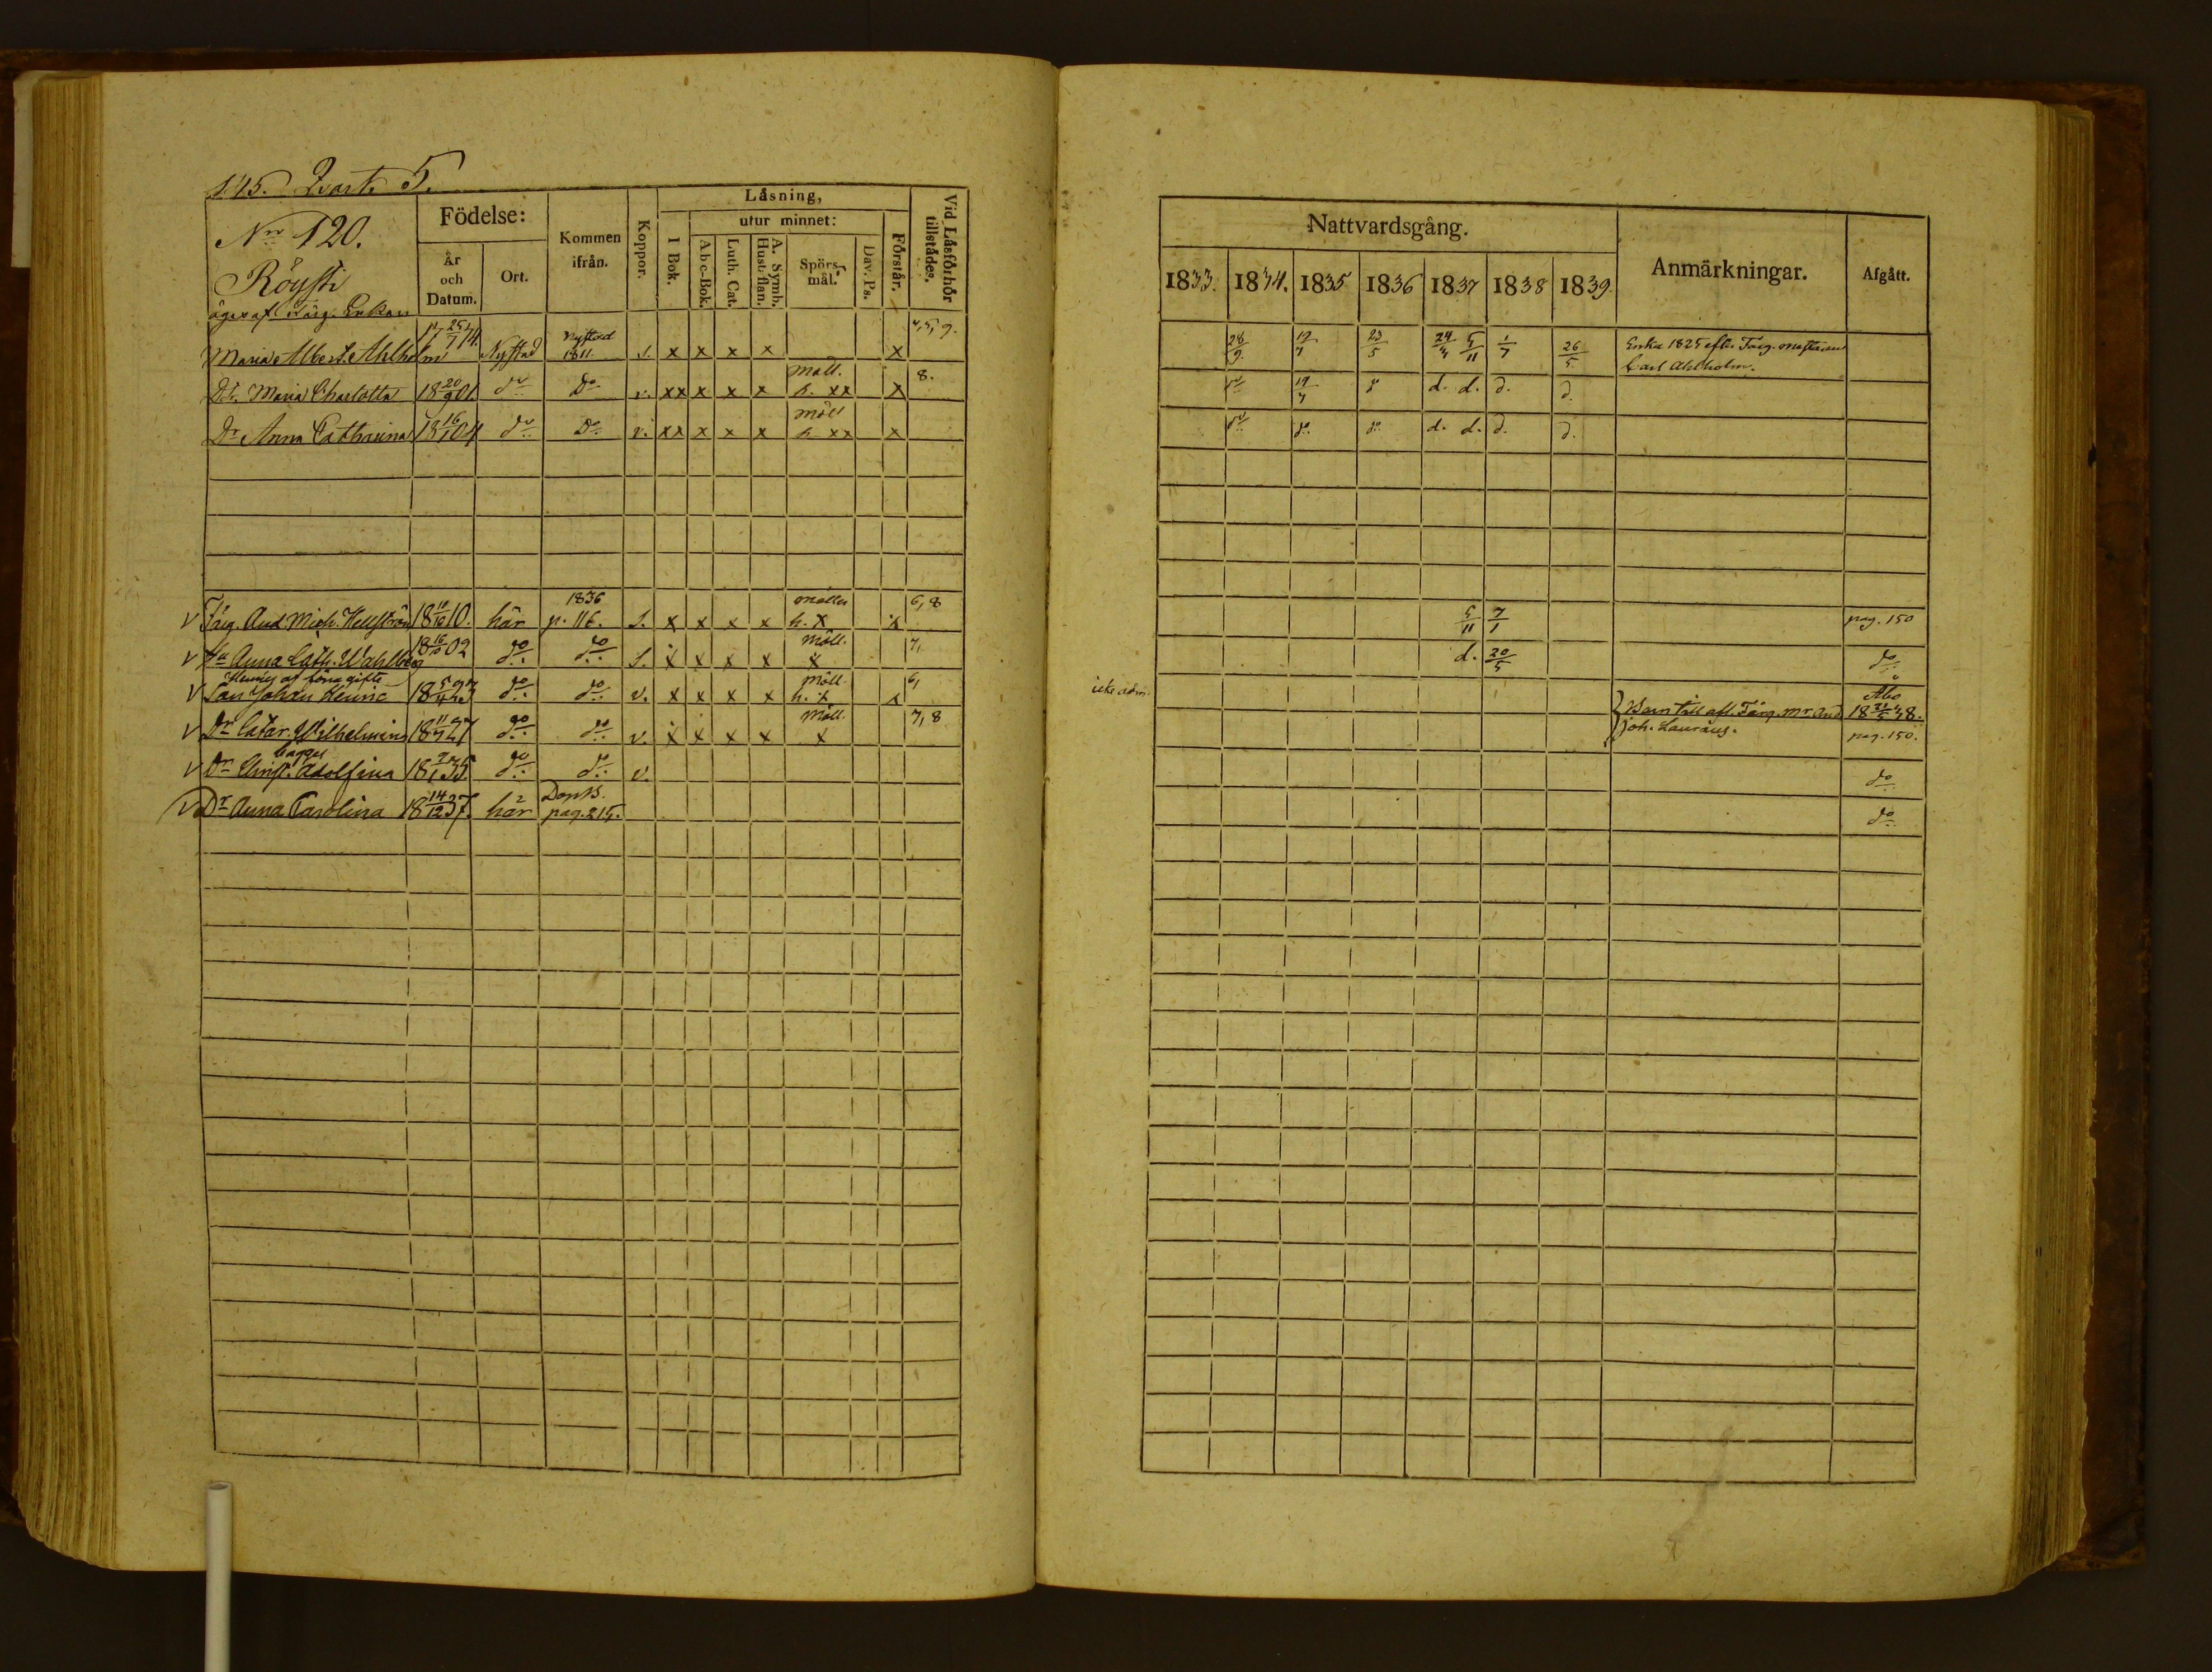 145. Qvart. 5.
Nro 120.
Röysti
äges af Färg. Enkan
Födelse:
År och Datum.
Ort.
Kommen ifrån.
Koppor.
Läsning,
utur minnet:
I Bok.
Abc-Bok.
Luth. Cat.
A. Symb. Hust:flan.
Spörsmål.
Dav. Ps.
Förstår.
Vid Läsförhör tillstädes.
Maria Albert. Ahlholm 17 25/7 74. Nystad Nystad 1811. s. x x x x x 4,5,9.
Dr. Maria Charlotta 18 20/9 01 do Do v. xx x x x måll. h. xx x 8.
Dr Anna Catharina 18 16/1 04 do Do v. xx x x x måll h. xx x
Färg. And. Mich. Hellström 18 10/10 10. här 1836 p. 116. s. x x x x måttel. h. x x 6,8
Hu Anna Cath. Wahlberg 18 16/10 02 do do s. x x x x måll. x 7,
Hennes af förra gifte
Son Johan Henric 18 5/4 23 do do v. x x x x måll. h. x x 6,
Dr Catar. Wilhelmina 18 11/7 27 do do v. x x x x måll. x 7,8
Dr Christ. Adolfina 18 7/1 35 do do v.
Dr Anna Carolina 18 14/12 37. här Dopb. pag. 215.
Nattvardsgång.
1833. 1834. 1835 1836 1837 1838 1839.
Anmärkningar.
Afgått.
28/9. 19/7 23/5 24/4 5/11 1/7 26/5 Enka 1825 efter Färg. mästaren
Carl Ahlholm.
do 19/7 do d. d. d. d.
do do do d. d. d. d.
5/11 7/1 pag. 150
d. 20/5 do
icke adm.
Barn till afl. Färg. Mr And.
Joh. Lauraeus.
Åbo
18 21/5 38.
pag. 150.
do
do